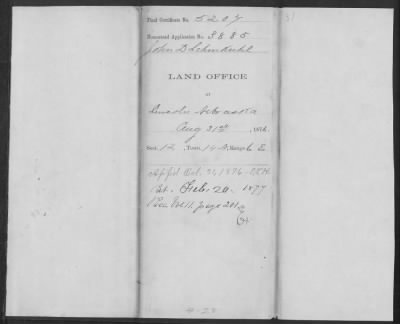 Final Certificate No. 5207
Homestead Application No. 3885
John D Schmidtuhl
LAND OFFICE
at
Lincoln Nebraska
Aug 21st, 1876
Sect. 12, Town. 14 N, Range 6 E
Ap'p'd Oct. 21, 1876
Pat. Feby 20. 1877
Rec Vol 11. page 201
4-23